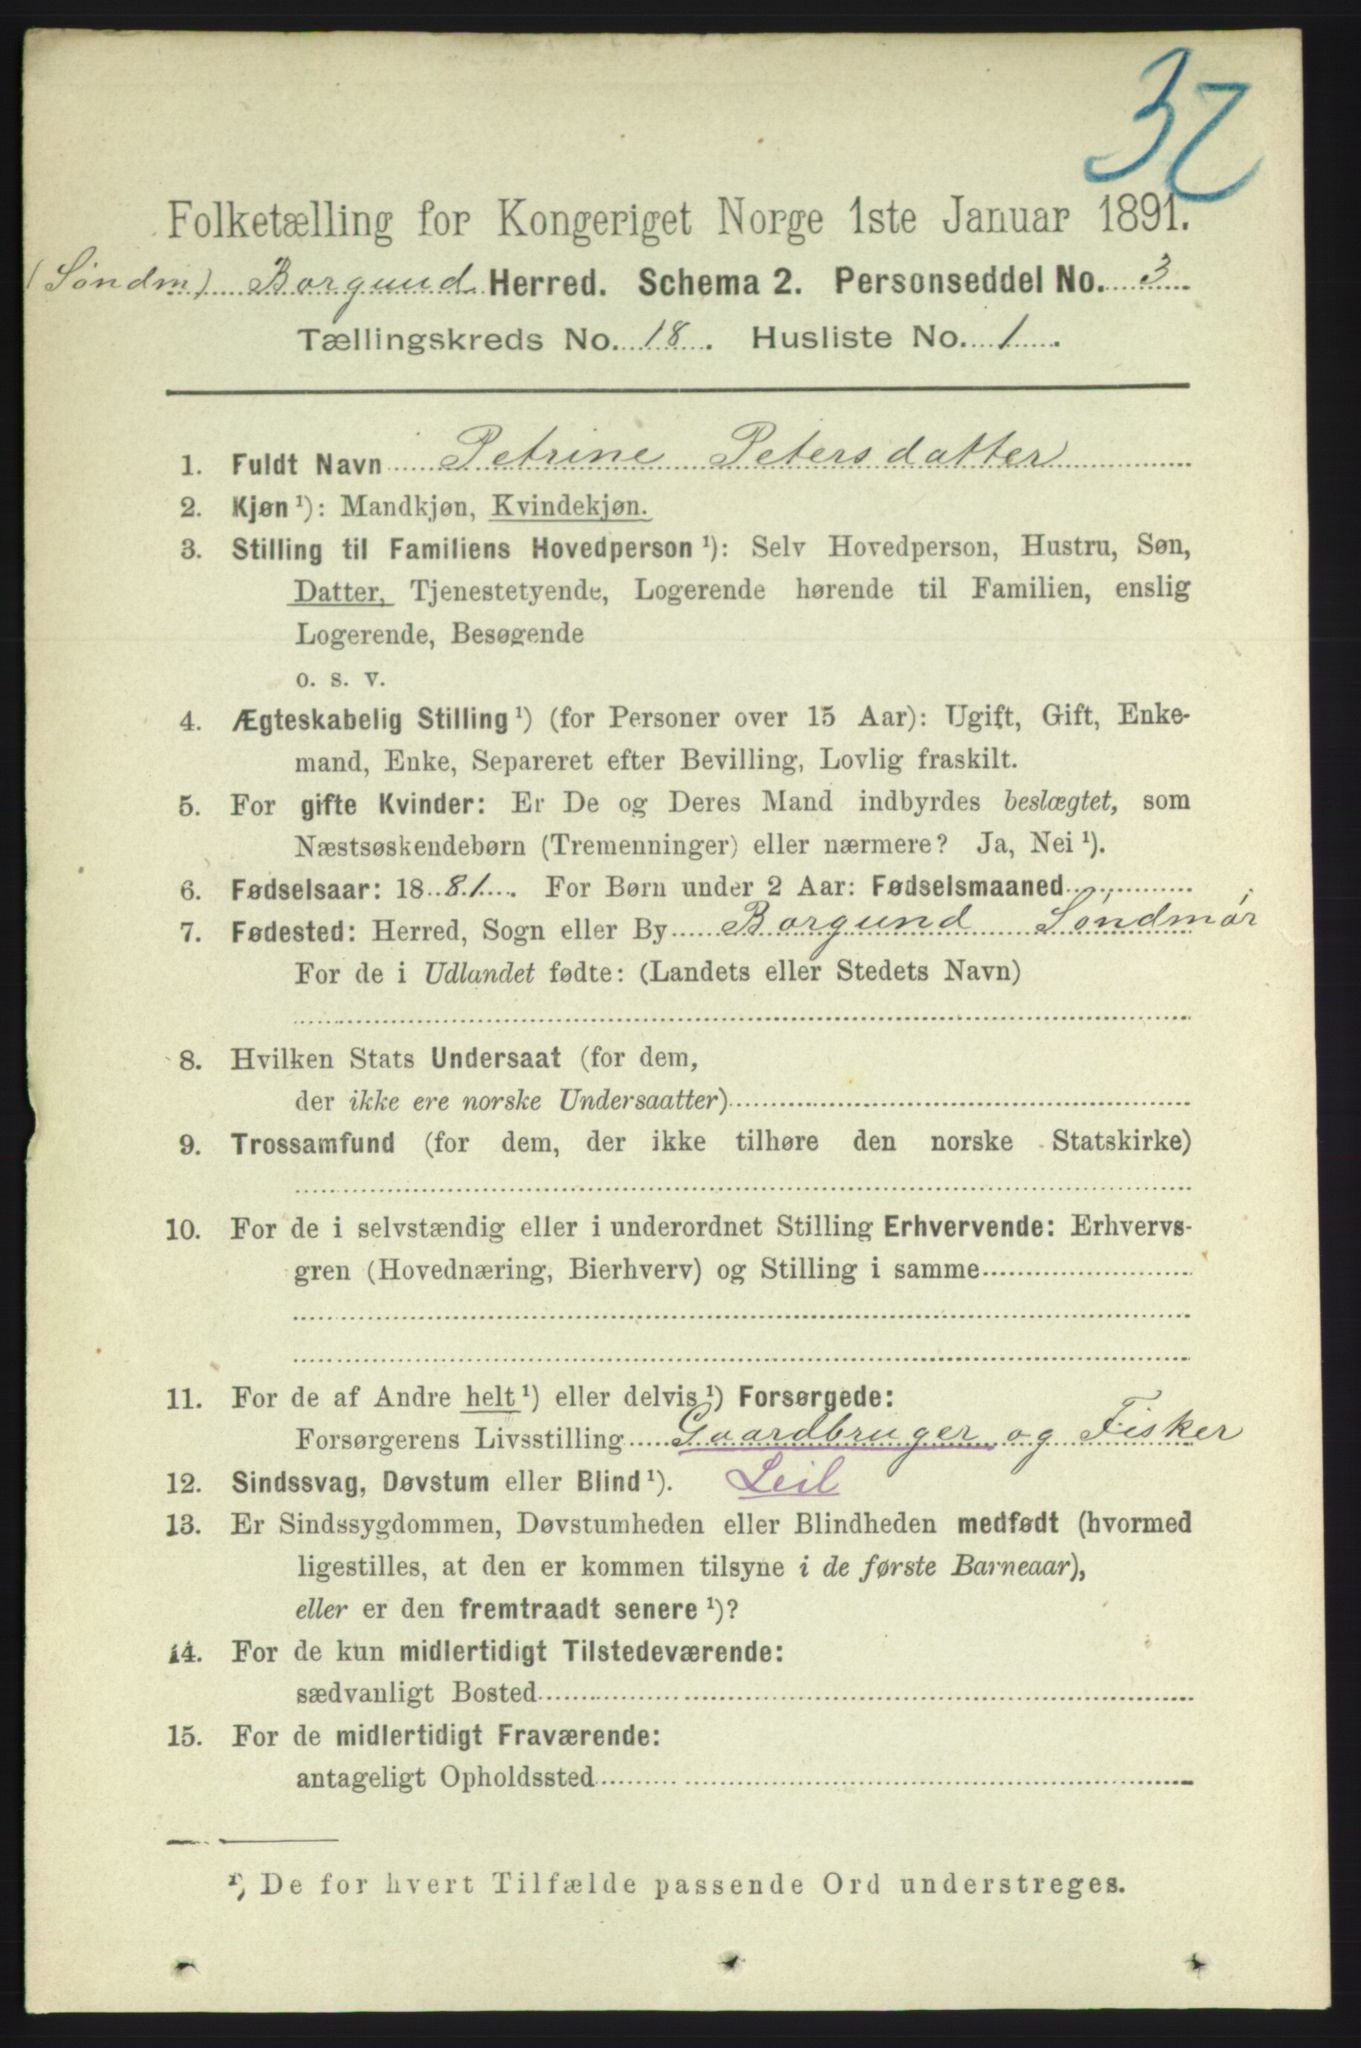 32
Folketælling for Kongeriget Norge 1ste Januar 1891.
(Søndm) Borgund Herred. Schema 2. Personseddel No. 3
Tællingskreds No. 18. Husliste No. 1.
1. Fuldt Navn Petrine Petersdatter
2. Kjøn ¹): Mandkjøn, Kvindekjøn.
3. Stilling til Familiens Hovedperson ¹): Selv Hovedperson, Hustru, Søn,
Datter, Tjenestetyende, Logerende hørende til Familien, enslig
Logerende, Besøgende
o. s. v.
4. Ægteskabelig Stilling ¹) (for Personer over 15 Aar): Ugift, Gift, Enke-
mand, Enke, Separeret efter Bevilling, Lovlig fraskilt.
5. For gifte Kvinder: Er De og Deres Mand indbyrdes beslægtet, som
Næstsøskendebørn (Tremenninger) eller nærmere? Ja, Nei ¹).
6. Fødselsaar: 1881. For Børn under 2 Aar: Fødselsmaaned
7. Fødested: Herred, Sogn eller By Borgund Søndmør
For de i Udlandet fødte: (Landets eller Stedets Navn)
8. Hvilken Stats Undersaat (for dem,
der ikke ere norske Undersaatter)
9. Trossamfund (for dem, der ikke tilhøre den norske Statskirke)
10. For de i selvstændig eller i underordnet Stilling Erhvervende: Erhvervs-
gren (Hovednæring, Bierhverv) og Stilling i samme
11. For de af Andre helt ¹) eller delvis ¹) Forsørgede:
Forsørgerens Livsstilling Gaardbruger og Fisker
12. Sindssvag, Døvstum eller Blind ¹). Leil
13. Er Sindssygdommen, Døvstumheden eller Blindheden medfødt (hvormed
ligestilles, at den er kommen tilsyne i de første Barneaar),
eller er den fremtraadt senere ¹)?
14. For de kun midlertidigt Tilstedeværende:
sædvanligt Bosted
15. For de midlertidigt Fraværende:
antageligt Opholdssted
¹) De for hvert Tilfælde passende Ord understreges.